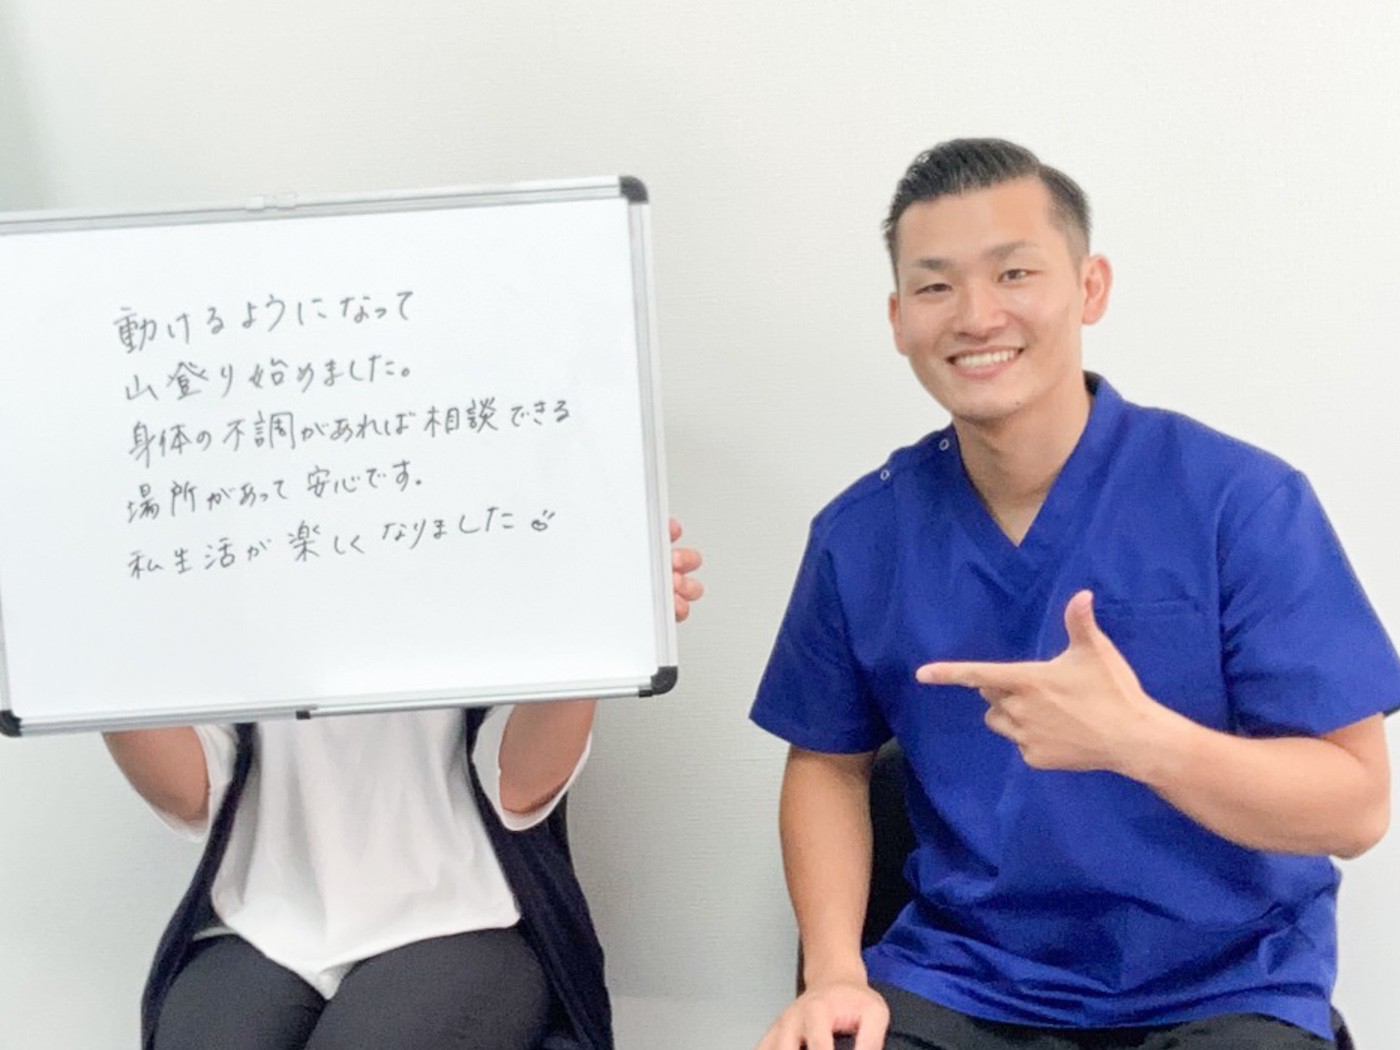 動けるようになって
山登り始めました。
身体の不調があれば相談できる
場所があって安心です。
私生活が楽しくなりました